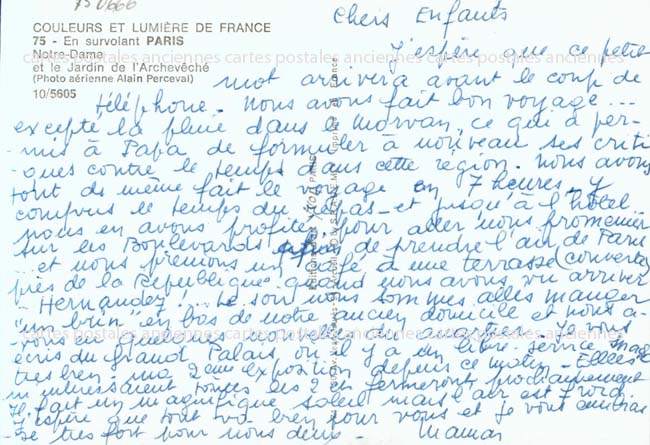 750666
COULEURS ET LUMIÈRE DE FRANCE
75 - En survolant PARIS
Notre-Dame
et le Jardin de l'Archevêché
(Photo aérienne Alain Perceval)
10/5605
cartes postales anciennes cartes postales anciennes cartes postales anciennes
Chers Enfants
J'espère que ce petit
mot arrivera avant le coup de
téléphone. Nous avons fait bon voyage...
excepté la pluie dans le Morvan, ce qui a per-
-mis à Papa de formuler à nouveau ses criti-
-ques contre le temps dans cette région. Nous avons
tout de même fait le voyage en 7 heures, y
compris le temps du repas - et jusqu'à l'hôtel
nous en avons profité pour aller nous promener
sur les Boulevards de prendre l'air de Paris
... et nous prenions un café à une terrasse (couverte)
près de la République quand nous avons vu arriver
- Hernandez! ... Le soir nous sommes allés manger
"un bien" en bas de notre ancien domicile et nous a-
-vons eu quelques
Je vous
écris du Grand Palais, où il y a un libre service
très bien - ma 2ème exposition depuis ce matin - Elles
m'intéressaient toutes les 2 et fermeront prochainement
Il fait un magnifique soleil mais l'air est froid.
J'espère que tout va bien pour vous et je vous embrasse
très fort pour nous deux -
Maman